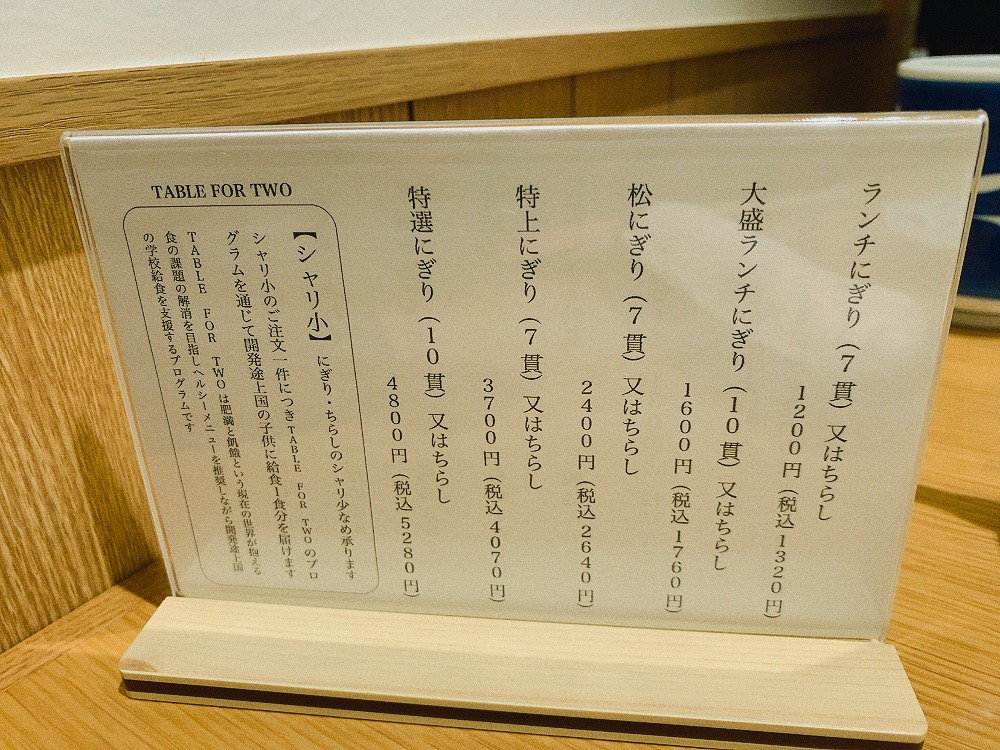 ランチにぎり（7貫）又はちらし
1200円（税込1320円）
大盛ランチにぎり（10貫）又はちらし
1600円（税込1760円）
松にぎり（7貫）又はちらし
2400円（税込2640円）
特上にぎり（7貫）又はちらし
3700円（税込4070円）
特選にぎり（10貫）又はちらし
4800円（税込5280円）
TABLE FOR TWO
【シャリ小】にぎり・ちらしのシャリ少なめ承ります
シャリ小のご注文一件につきTABLE FOR TWOのプロ
グラムを通じて開発途上国の子供に給食1食分を届けます
TABLE FOR TWOは肥満と飢餓という現在の世界が抱える
食の課題の解消を目指しヘルシーメニューを推奨しながら開発途上国
の学校給食を支援するプログラムです